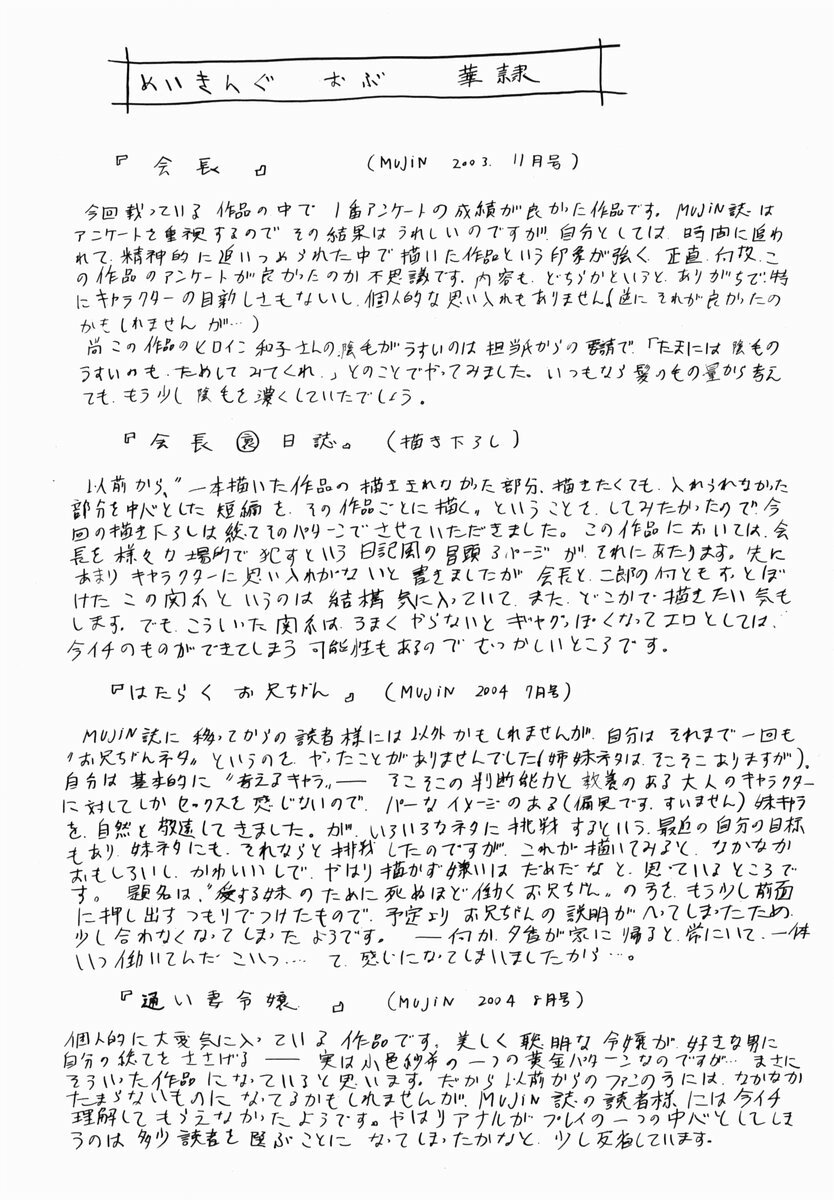 めいきんぐ おぶ 華隷
『 会長 』 (MUJIN 2003. 11月号)
今回載っている作品の中で 1番アンケートの成績が良かった作品です。MUJIN誌は
アンケートを重視するので その結果はうれしいのですが、自分としては、時間に追わ
れて、精神的に追いつめられた中で描いた作品という印象が強く、正直、何故、こ
の作品のアンケートが良かったのか不思議です。内容も、どちらかというと、ありがちで、特
にキャラクターの目新しさもないし、個人的な思い入れもありません(逆に それが良かったの
かもしれません が…)
尚 この作品のヒロイン 和子さんの陰毛がうすいのは 担当氏からの要請で、「たまには 陰毛の
うすいのも、ためして みてくれ。」とのことでやってみました。いつもなら 髪のもの量から考え
ても、もう少し 陰毛を濃くしていたでしょう。
『会長 裏 日誌。 (描き下ろし)
以前から、〝一本描いた作品の 描ききれなかった部分、描きたくても、入れられなかった
部分を中心とした 短編を、その作品ごとに描く〟ということを、してみたかったので、今
回の描き下ろしは総てそのパターンでさせていただきました。この作品においては、会
長を 様々な場所で 犯すという 日記風の冒頭 3ページ が、それにあたります。先に
あまり キャラクターに思い入れがないと 書きましたが 会長と、二郎の何とも すっとぼ
けた この関係と いうのは 結構 気に入っていて、また、どこかで描きたい気も
します。でも、こういった関係は、うまく やらないと ギャグっぽくなってエロとしては、
今イチのものができてしまう 可能性もあるので むつかしいところです。
『はたらく お兄ちゃん 』 (MUJIN 2004 7月号)
MUJIN誌に 移ってからの読者様には 以外かもしれませんが、自分は それまで一回も
〝お兄ちゃんネタ〟 というのを、やったことがありませんでした(姉妹ネタは、そこそこありますが)。
自分は 基本的に 〝考えるキャラ〟── そこそこの判断能力と 教養のある大人のキャラクター
に対してしか セックスを感じないので、パーなイメージのある(偏見です、すいません)妹キャラ
を、自然と敬遠してきました。が、いろいろなネタに挑戦するという、最近の自分の目標
もあり、妹ネタにも、それならと挑戦したのですが、これが描いてみると、なかなか
おもしろいし、かわいいしで、やはり描かず嫌いは だめだなと、思っているところで
す。 題名は、〝愛する妹のために死ぬほど働くお兄ちゃん〟の方を、もう少し前面
に押し出すつもりでつけたもので、予定より お兄ちゃんの説明がへってしまったため、
少し合わなくなってしまったようです。 ── 何か、夕香が家に帰ると、常にいて、一体
いつ働いてんだ こいつ…… て、感じになってしまいましたから…。
『通い妻令嬢 』 (MUJIN 2004 8月号)
個人的に大変気に入っている作品です。美しく聡明な令嬢が、好きな男に
自分の総てをささげる ── 実は小邑紗希の一つの黄金パターンなのですが… まさに
そういった作品になっていると思います。だから以前からのファンの方には、なかなか
たまらないものに なってるかもしれませんが、MUJIN誌の読者様には今イチ
理解してもらえなかったようです。やはりアナルがプレイの一つの中心としてしま
うのは 多少読者を選ぶことになってしまったかなと、少し反省しています。